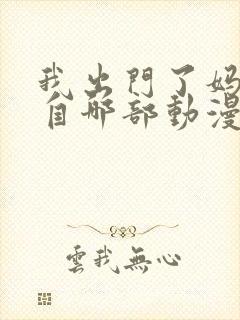 我出門了媽
自哪部動漫
雲我無心